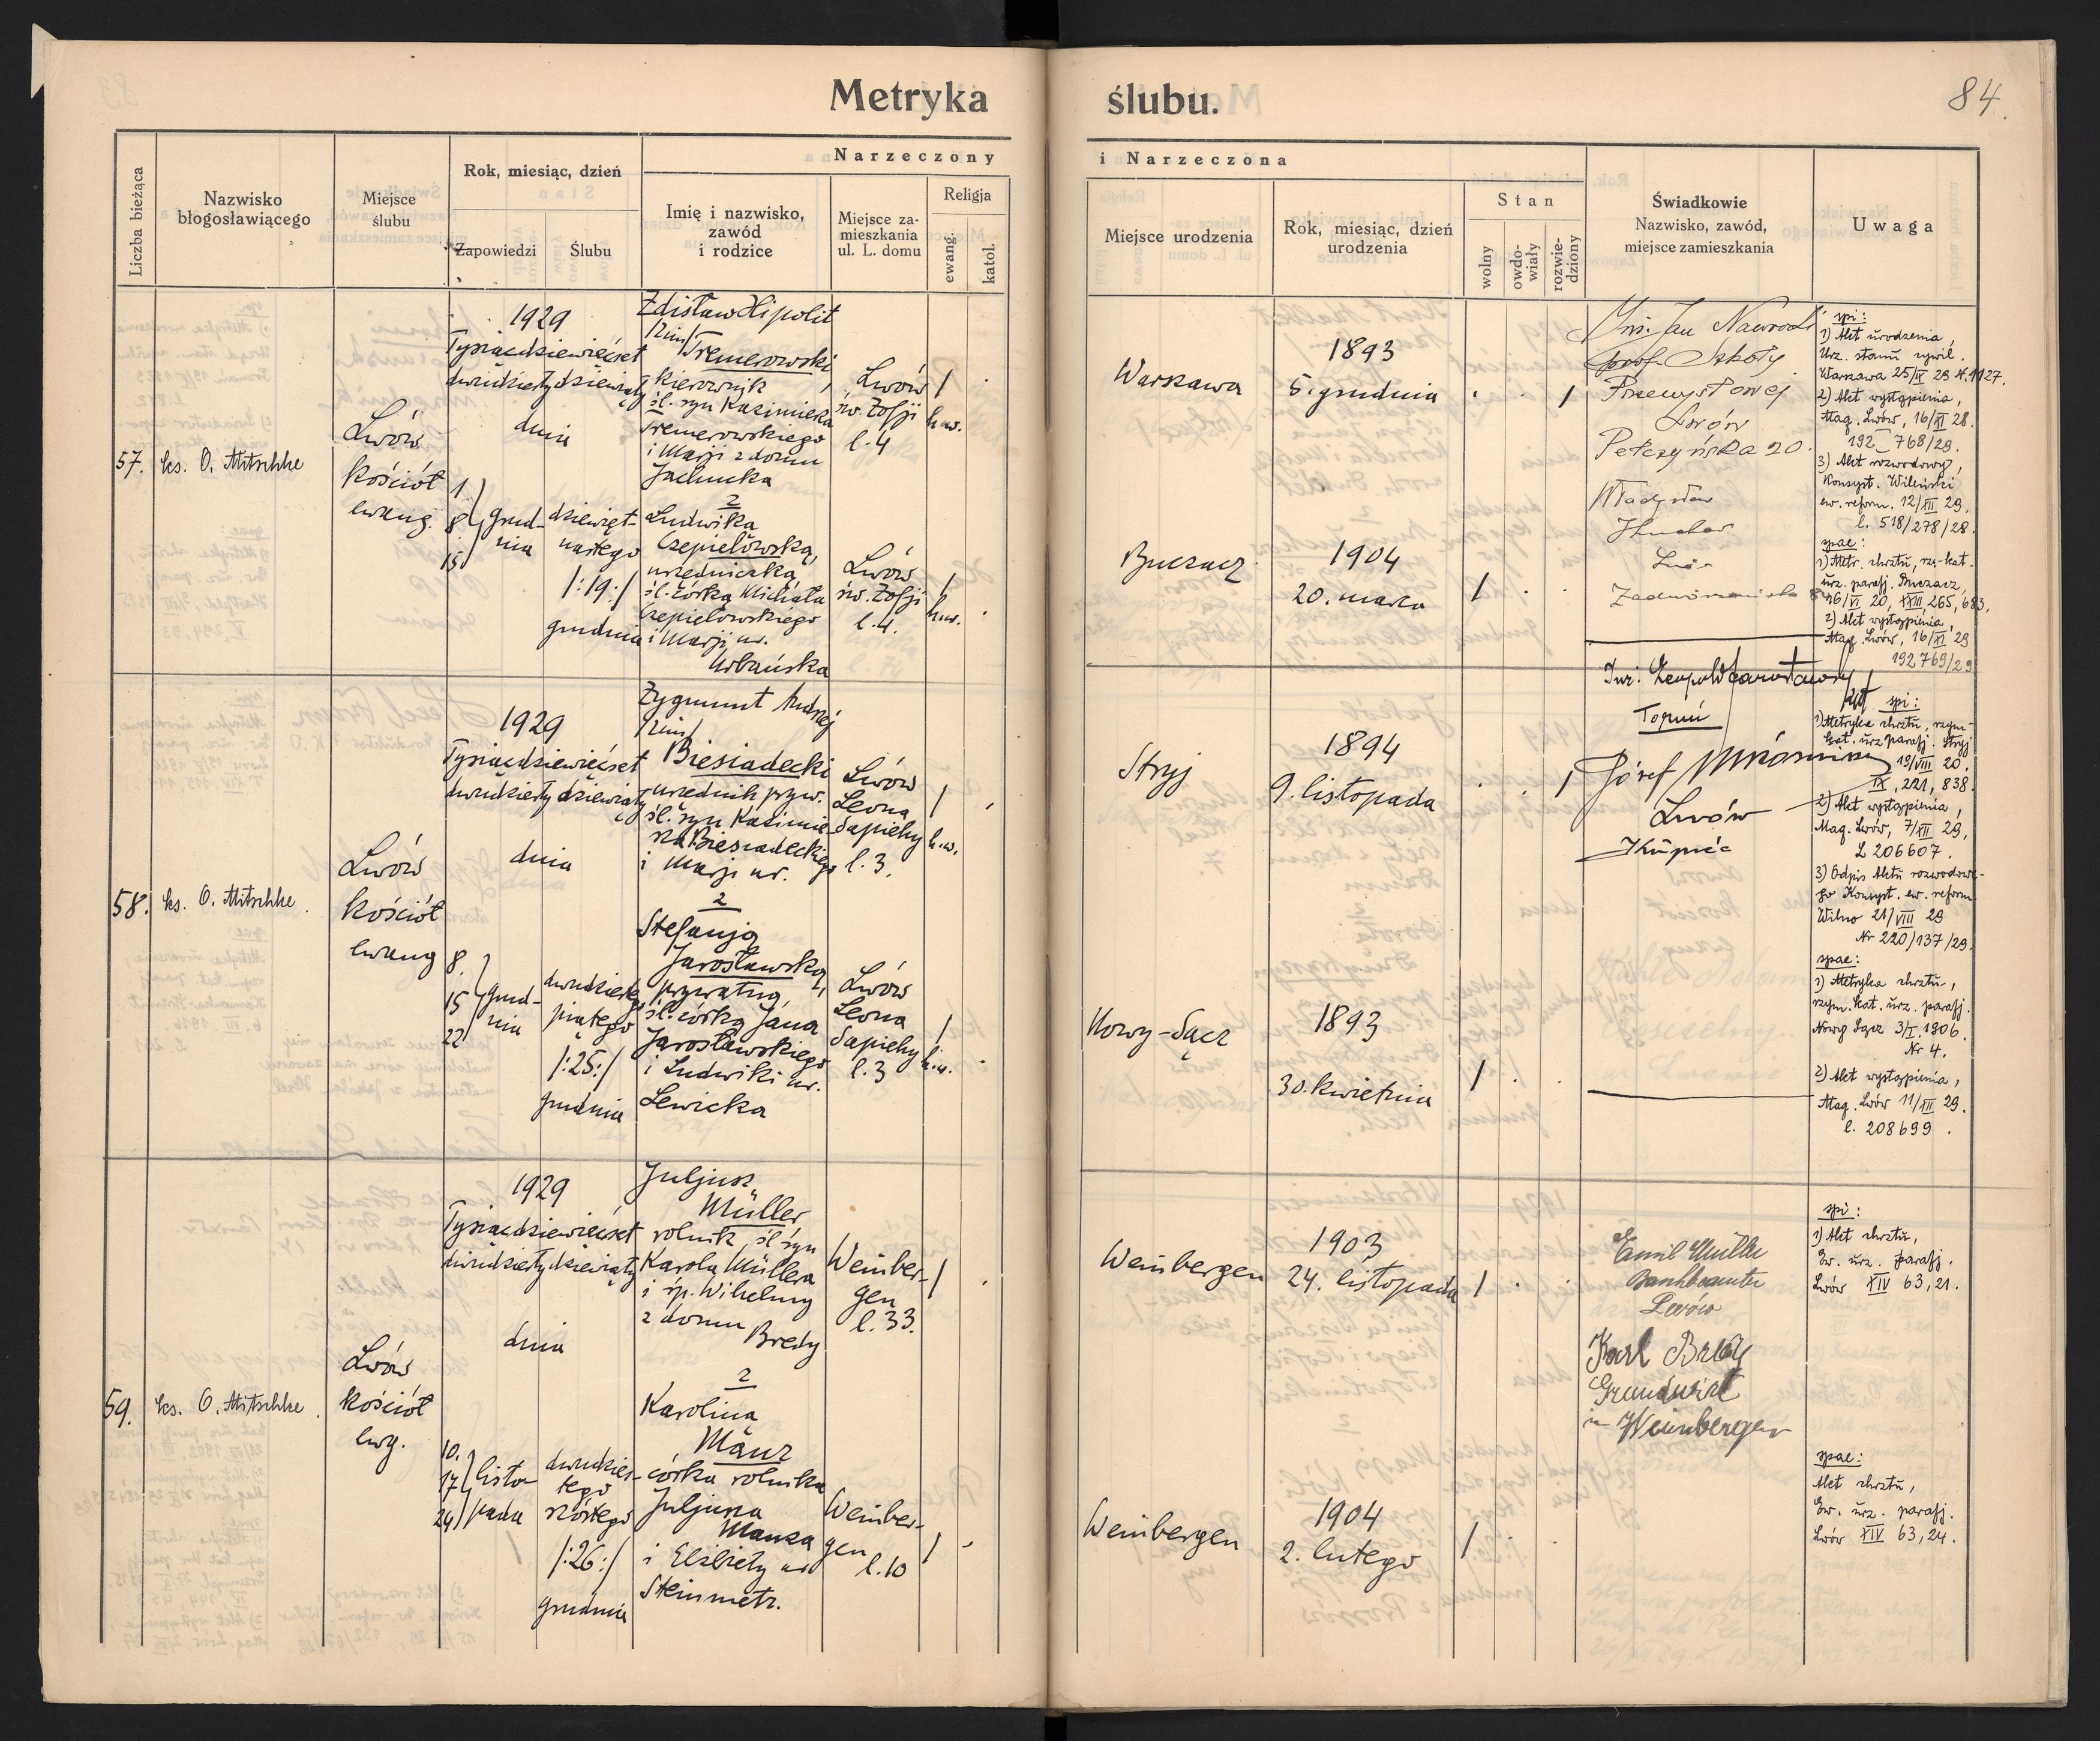 Metryka ślubu.
84.
Liczba bieżąca
Nazwisko
błogosławiącego
Miejsce
ślubu
Rok, miesiąc, dzień
Zapowiedzi
Ślubu
Narzeczony
Imię i nazwisko,
zawód
i rodzice
Miejsce za-
mieszkania
ul. L. domu
Religja
ewang.
katol.
i Narzeczona
Miejsce urodzenia
Rok, miesiąc, dzień
urodzenia
Stan
wolny
owdo-
wiały
rozwie-
dziony
Świadkowie
Nazwisko, zawód,
miejsce zamieszkania
Uwaga
57.
ks. O. Mitschke
Lwów
kościół
ewang.
1929
Tysiącdziewięćset
dwudziesty dziewiąty
dnia
1.
8.
15
grud-
nia
dziewięt-
nastego
/:19:/
grudnia
Zdisław Hipolit
/2im/
Śremerowski
kierownik,
śl. syn Kazimierza
Śremerowskiego
i Marji z domu
Jachucka
2
Ludwika
Czepielowska,
urzędniczka,
śl. córka Michała
Czepielowskiego
i Marji ur.
Urbańska
Lwów
św. Zofji
l. 4
Lwów
św. Zofji
l. 4.
/
h.w.
/
h.w.
Warszawa
1893
5. grudnia
/
Buczacz
1904
20. marca
/
Inż. Jan Nawrocki
prof. Szkoły
Przemysłowej
Lwów
Pełczyńska 20.
Władysław
spi:
1) Akt urodzenia,
Urz. stanu cywil.
Warszawa 25/IX 29 N. 1127.
2) Akt wystąpienia,
Mag. Lwów, 16/XI 28.
192 768/29.
3) Akt rozwodowy,
Konsyst. Wileński
ew. reform. 12/XII 29.
l. 518/278/28.
spae:
1) Metr. chrztu, rz.-kat.
urz. parafj. Buczacz,
16/VI 20, XXIII, 265, 683.
2) Akt wystąpienia,
Mag. Lwów, 16/XI 29
192 769/29
58.
ks. O. Mitschke
Lwów
kościół
ewang
1929
Tysiącdziewięćset
dwudziesty dziewiąty
dnia
8.
15
22
grud-
nia
dwudzieste-
go
piątego
/:25:/
grudnia
Zygmunt Andrzej
/2im/
Biesiadecki
urzędnik pryw.
śl. syn Kazimie-
rza Biesiadeckiego
i Marji ur.
2
Stefanja
Jarosławska,
prywatna,
śl. córka Jana
Jarosławskiego
i Ludwiki ur.
Lewicka
Lwów
Leona
Sapiehy
l. 3.
Lwów
Leona
Sapiehy
l. 3
/
h.w.
/
h.w.
Stryj
1894
9. listopada
/
Nowy-Sącz
1893
30. kwietnia
/
Inż. Leopold
Toruń
Józef
Lwów
Kupiec
spi:
1) Metryka chrztu, rzym-
kat. urz parafj. Stryj
19/VIII 20.
IX, 221, 838.
2) Akt wystąpienia,
Mag. Lwów, 7/XII 29,
L 206607.
3) Odpis Aktu rozwodowe-
go Konsyst. ew. reform
Wilno 21/VIII 29
Nr 220/137/29.
spae:
1) Metryka chrztu,
rzym. kat. urz. parafj.
Nowy Sącz 3/I. 1906.
Nr 4.
2) Akt wystąpienia,
Mag. Lwów 11/XII 29.
l. 208699.
59.
ks. O. Mitschke.
Lwów
kościół
ewg.
1929
Tysiącdziewięćset
dwudziesty dziewiąty
dnia
10.
17
24
listo-
pada
dwudzies-
tego
szóstego
/:26:/
grudnia
Juljusz
Müller
rolnik, śl syn
Karola Müllera
i śp. Wilhelmy
z domu
Bredy
2
Karolina
Manz
córka rolnika
Juljusza
Manza
i Elżbiety ur
Steinmetz.
Weinber-
gen
l. 33.
Weinber-
gen
l. 10
/
/
Weinbergen
1903
24. listopada
/
Weinbergen
1904
2. lutego
/
Emil Müller
Bankbeamter
Lwów
Karl Bredy
Grundwirt
in Weinbergen
spi:
1) Akt chrztu,
Ew. urz. parafj.
Lwów XIV 63, 21.
spae:
Akt chrztu,
Ew. urz. parafj.
Lwów XIV 63, 24.